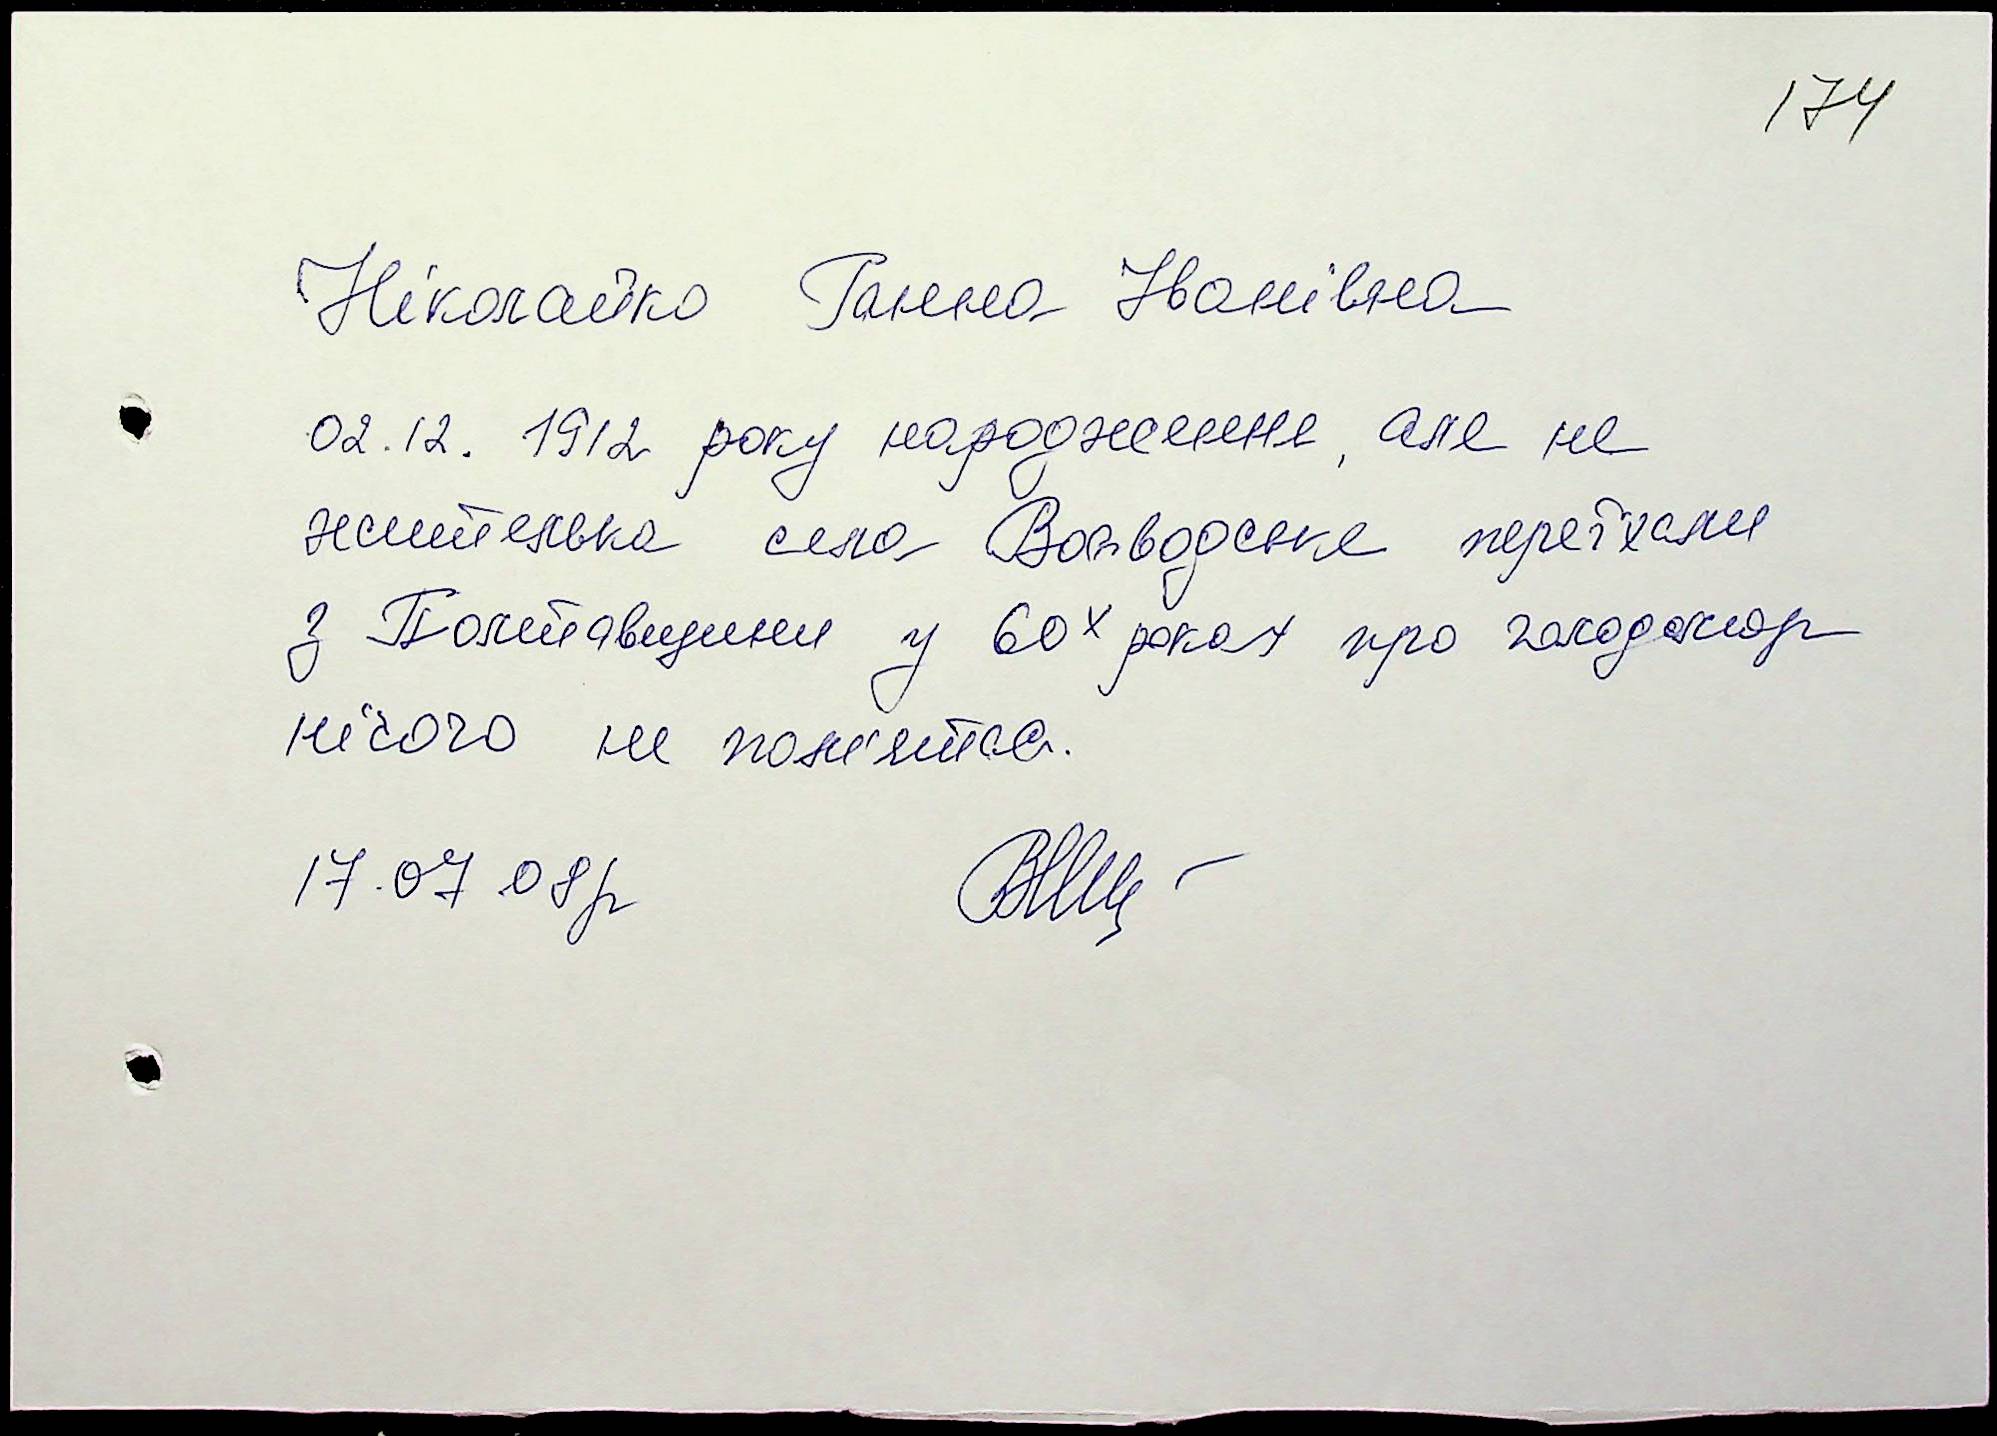 174
Ніколайко Ганна Іванівна
02.12. 1912 року народження, але не
жителька села Воєводське переїхали
з Полтавщини у 60х роках про голодомор
нічого не пам'ятає.
17.07.08р